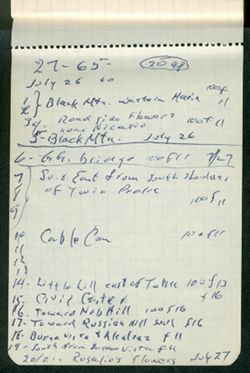 27-65- 20 exp
July 26 to
1 } Black Mtn. western Marin 100f
2 11
3 } Road side flowers
4 near Nicasio 100 f 11
5- Black Mtn. July 26
6- G.G. bridge 100 f 11 7/27
7 South East from South shoulder
8 of Twin Peaks
9 100 f 11
10
11 Cable Car 100 f 11
12
13
14- Little hill east of Tabee 100 f 13
15- Civic Center f 16
16- Toward Nob Hill 100 f 16
17- Toward Russian Hill small f 16
18- Buena vista & Alcatraz f 11
19- South from Buena Vista f 11
20/21- Rosalie's flowers July 27